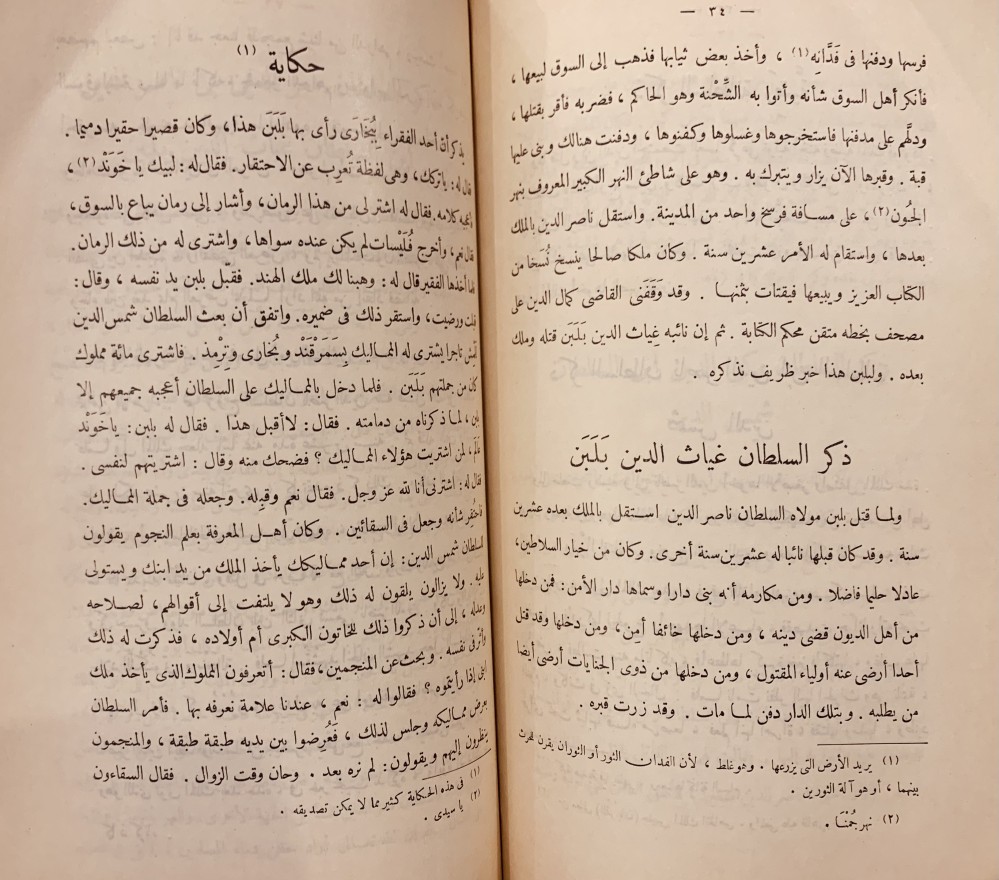 — ٣٤ —
فرسها ودفنها فى فَدَّانِه (١) ، وأخذ بعض ثيابها فذهب إلى السوق ليبيعها ،
فأنكر أهل السوق شأنه وأتوا به الشِّحْنة وهو الحاكم ، فضربه فأقر بقتلها ،
ودلَّهم على مدفنها فاستخرجوها وغسلوها وكفنوها ، ودفنت هنالك وبنى عليها
قبة . وقبرها الآن يزار ويتبرك به . وهو على شاطئ النهر الكبير المعروف بنهر
الجُون (٢) ، على مسافة فرسخ واحد من المدينة . واستقل ناصر الدين بالملك
بعدها ، واستقام له الأمر عشرين سنة . وكان ملكا صالحا ينسخ نُسَخا من
الكتاب العزيز ويبيعها فيقتات بثمنها . وقد وَقَفَنى القاضى كمال الدين على
مصحف بخطه متقن محكم الكتابة . ثم إن نائبه غياث الدين بَلَبَن قتله وملك
بعده . ولبلبن هذا خبر ظريف نذكره .
ذكر السلطان غياث الدين بَلَبَن
ولما قتل بلبن مولاه السلطان ناصر الدين استقل بالملك بعده عشرين
سنة . وقد كان قبلها نائبا له عشرين سنة أخرى . وكان من خيار السلاطين ،
عادلا حليما فاضلا . ومن مكارمه أنه بنى دارا وسماها دار الأمن : فمن دخلها
من أهل الديون قضى دينه ، ومن دخلها خائفا أمِن ، ومن دخلها وقد قتل
أحدا أرضى عنه أولياء المقتول ، ومن دخلها من ذوى الجنايات أرضى أيضا
من يطلبه . وبتلك الدار دفن لما مات . وقد زرت قبره .
(١) يريد الأرض التى يزرعها . وهو غلط ، لأن الفدان الثور أو الثوران يقرن للحرث
بينهما ، أو هو آلة الثورين .
(٢) نهر جُمْنَا .
حكاية (١)
يذكر أن أحد الفقراء بِبُخَارَى رأى بها بَلَبَنَ هذا ، وكان قصيرا حقيرا دميما .
فقال له : ياتركك ، وهى لفظة تُعرِب عن الاحتقار . فقال له : لبيك يا خَوَنْد (٢) ،
فأعجبه كلامه . فقال له اشتر لى من هذا الرمان ، وأشار إلى رمان يباع بالسوق ،
فقال نعم ، وأخرج فُلَيْسات لم يكن عنده سواها ، واشترى له من ذلك الرمان .
فلما أخذها الفقير قال له : وهبنا لك ملك الهند . فقبّل بلبن يد نفسه ، وقال :
قبلت ورضيت ، واستقر ذلك فى ضميره . واتفق أن بعث السلطان شمس الدين
تاجرا يشترى له المماليك بِسَمَرْقَنْد وبُخارى وتِرْمِذ . فاشترى مائة مملوك
كان من جملتهم بَلَبَن . فلما دخل بالمماليك على السلطان أعجبه جميعهم إلا
بلبن ، لما ذكرناه من دمامته . فقال : لا أقبل هذا . فقال له بلبن : يا خَوَنْد
عالَم ، لمن اشتريت هؤلاء المماليك ؟ فضحك منه وقال : اشتريتهم لنفسى .
فقال له : اشترنى أنا لله عز وجل . فقال نعم وقبله . وجعله فى جملة المماليك .
فاحتُقِر شأنه وجعل فى السقائين . وكان أهل المعرفة بعلم النجوم يقولون
للسلطان شمس الدين : إن أحد مماليكك يأخذ الملك من يد ابنك ويستولى
عليه . ولا يزالون يلقون له ذلك وهو لا يلتفت إلى أقوالهم ، لصلاحه
وعدله ، إلى أن ذكروا ذلك للخاتون الكبرى أم أولاده ، فذكرت له ذلك
وأثر فى نفسه . وبحث عن المنجمين ، فقال : أتعرفون المملوك الذى يأخذ ملك
ابنى إذا رأيتموه ؟ فقالوا له : نعم ، عندنا علامة نعرفه بها . فأمر السلطان
بعرض مماليكه وجلس لذلك ، فعُرِضوا بين يديه طبقة طبقة ، والمنجمون
ينظرون إليهم ويقولون : لم نره بعد . وحان وقت الزوال . فقال السقاءون
(١) فى هذه الحكاية كثير مما لا يمكن تصديقه .
(٢) يا سيدى .